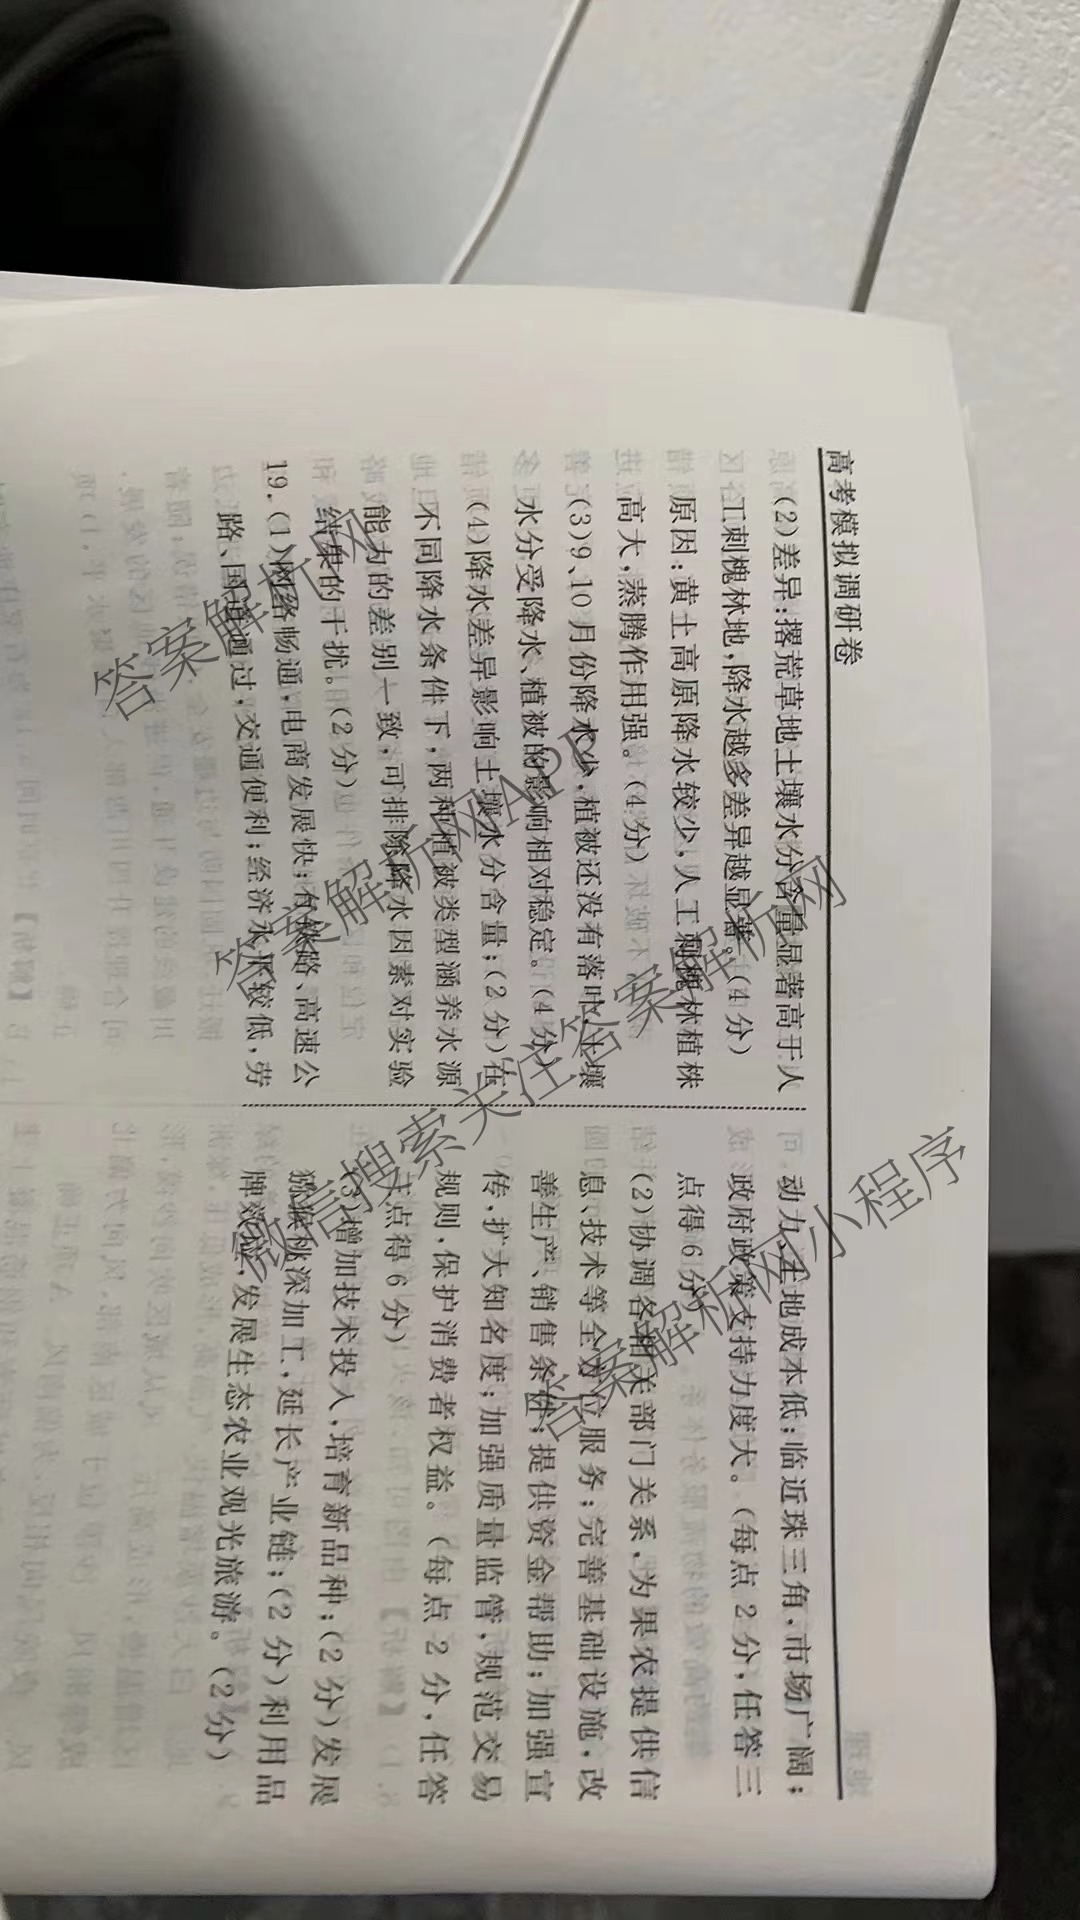 高考模拟调研卷
(2)差异:撂荒草地土壤水分含量显著高于人
工刺槐林地,降水越多差异越显著。(4分)
原因:黄土高原降水较少,人工刺槐林植株
高大,蒸腾作用强。(4分)
(3)9、10月份降水少,植被还没有落叶,土壤
水分受降水、植被的影响相对稳定。(4分)
(4)降水差异影响土壤水分含量;(2分)在
不同降水条件下,两种植被类型涵养水源
能力的差别一致,可排除降水因素对实验
结果的干扰。(2分)
19.(1)网络畅通,电商发展快;有铁路、高速公
路、国道通过,交通便利;经济水平较低,劳
动力、土地成本低;临近珠三角,市场广阔;
政府政策支持力度大。(每点2分,任答三
点得6分)
(2)协调各相关部门关系,为果农提供信
息、技术等全方位服务;完善基础设施,改
善生产、销售条件;提供资金帮助;加强宣
传,扩大知名度;加强质量监管,规范交易
规则,保护消费者权益。(每点2分,任答
三点得6分)
(3)增加技术投入,培育新品种;(2分)发展
猕猴桃深加工,延长产业链;(2分)利用品
牌效应,发展生态农业观光旅游。(2分)
答案解析网
答案解析网APP
微信搜索关注答案解析网
答案解析网小程序